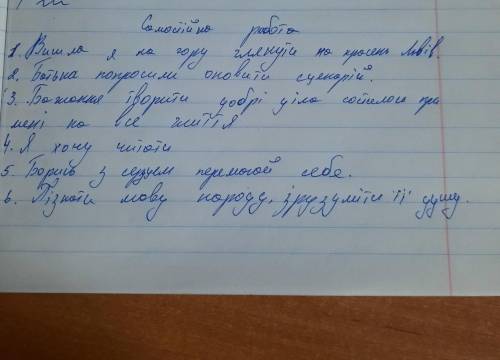 Самостійна робота
1. Вишла я на гору глянути на красень Львів.
2. Батька попросили оновити сценарій.
3. Бажання творити добрі діла при
мені на все життя
4. Я хочу читати
5. Борись з серцем перемагай себе.
6. Пізнати мову народу, зрузуміти її душу.